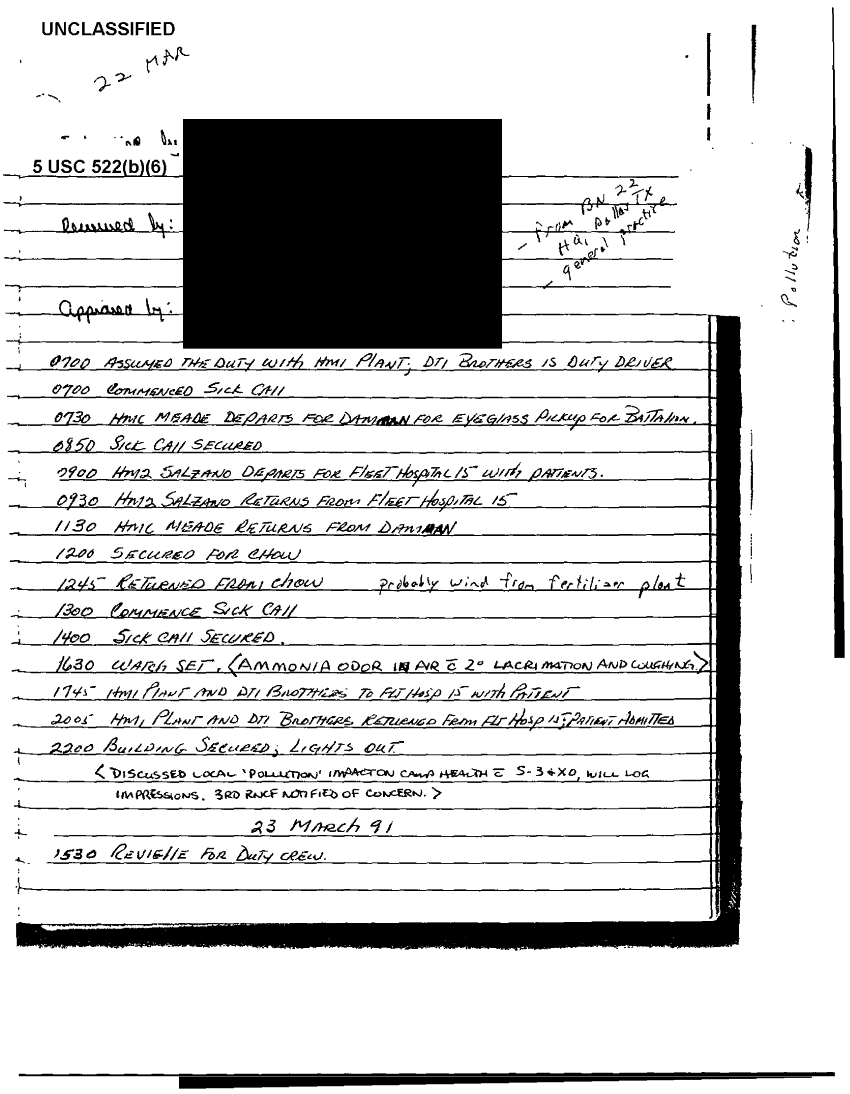 UNCLASSIFIED
22 MAR
by:
5 USC 522(b)(6)
Reviewed by:
- From BN 22
HQ, Dallas TX
- general practice
: Pollution
Approved by:
0700 ASSUMED THE DUTY WITH HM1 PLANT; DT1 BROTHERS IS DUTY DRIVER
0700 COMMENCED SICK CALL
0730 HMC MEADE DEPARTS FOR DAMMAN FOR EYEGLASS PICKUP FOR BATTALION.
0850 SICK CALL SECURED
0900 HM2 SALZANO DEPARTS FOR FLEET HOSPITAL 15 WITH PATIENTS.
0930 HM2 SALZANO RETURNS FROM FLEET HOSPITAL 15
1130 HMC MEADE RETURNS FROM DAMMAN
1200 SECURED FOR CHOW
1245 RETURNED FROM CHOW probably wind from fertilizer plant
1300 COMMENCE SICK CALL
1400 SICK CALL SECURED.
1630 WATCH SET. (AMMONIA ODOR IN AIR c̄ 2° LACRIMATION AND COUGHING.)
1745 HM1 PLANT AND DT1 BROTHERS TO FLT HOSP 15 WITH PATIENT
2005 HM1 PLANT AND DT1 BROTHERS RETURNED FROM FLT HOSP 15; PATIENT ADMITTED
2200 BUILDING SECURED; LIGHTS OUT
< DISCUSSED LOCAL 'POLLUTION' IMPACT ON CAMP HEALTH c̄ S-3 & XO, WILL LOG
IMPRESSIONS. 3RD RNCF NOTIFIED OF CONCERN. >
23 MARCH 91
0530 REVIELLE FOR DUTY CREW.